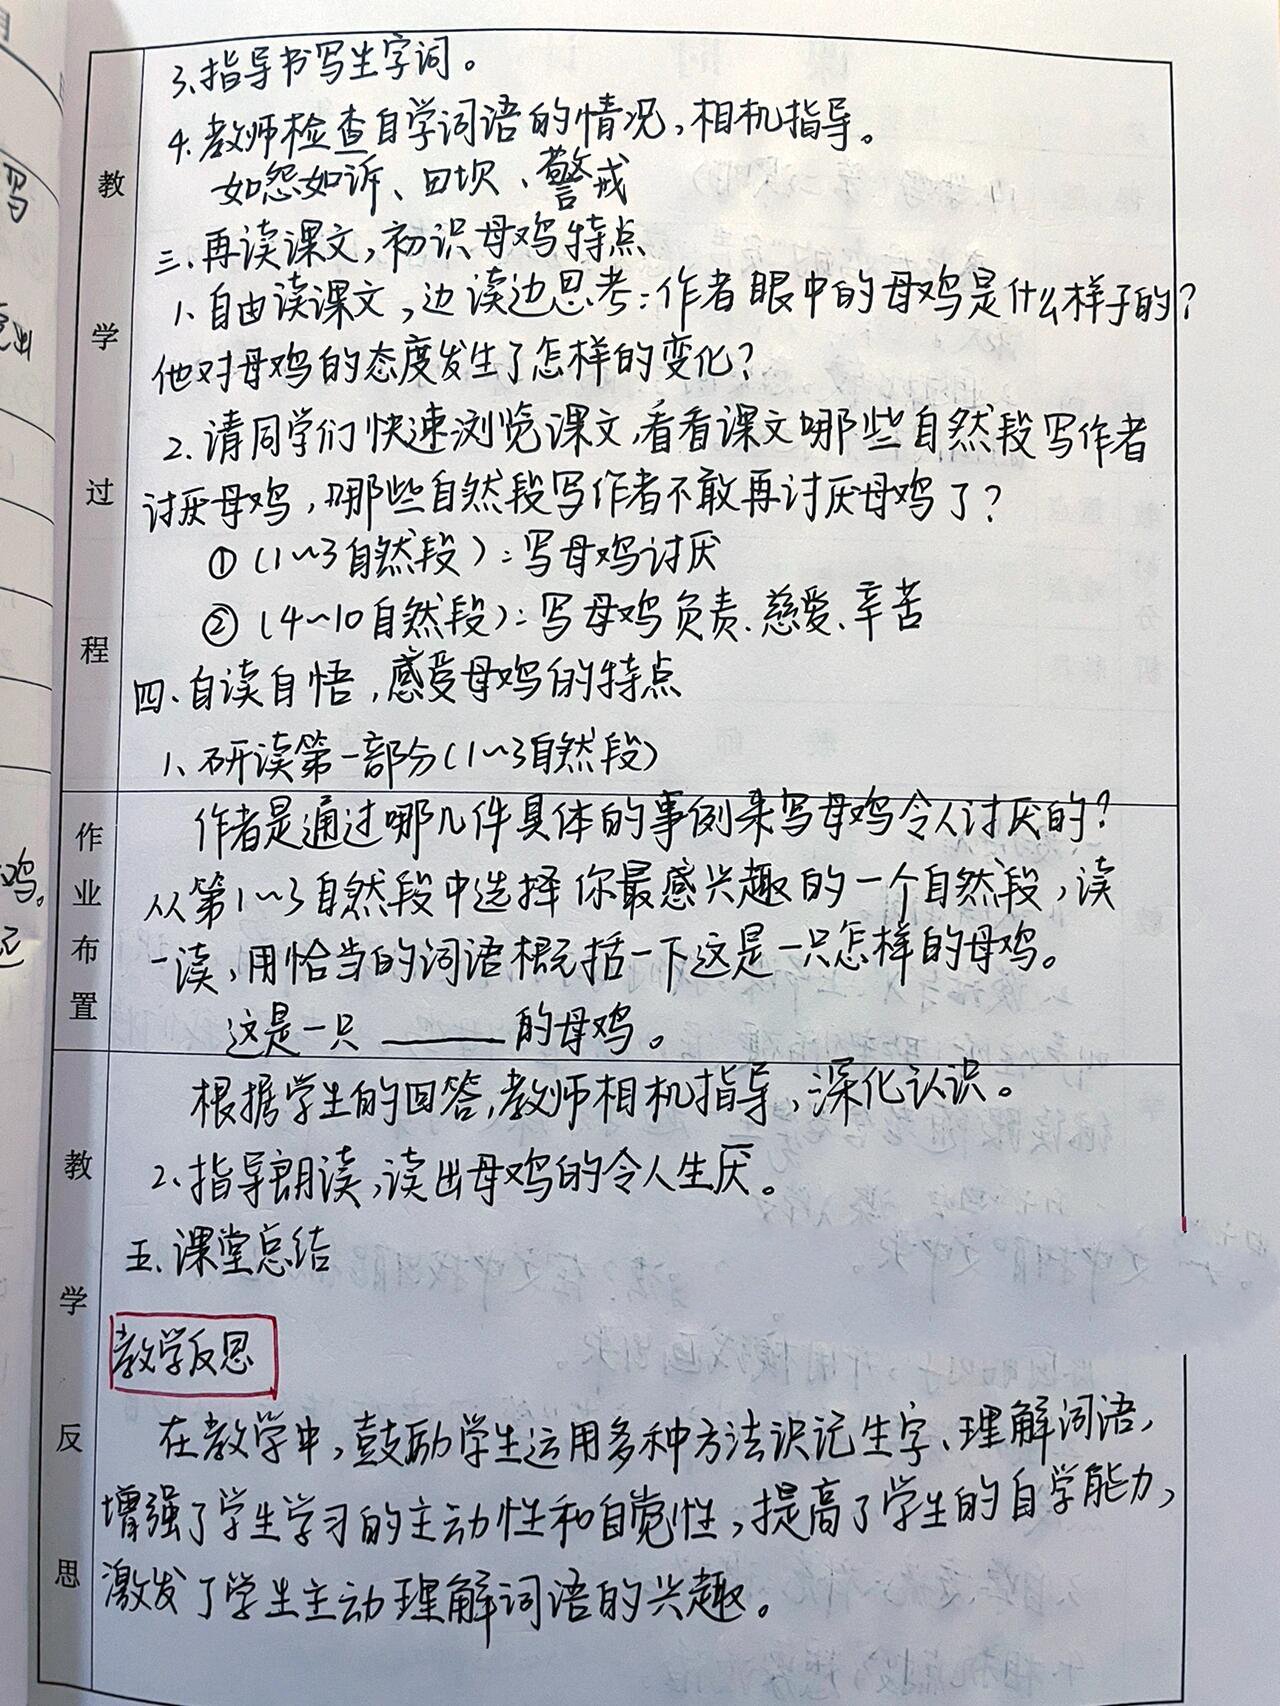 3.指导书写生字词。
4.教师检查自学词语的情况,相机指导。
如怨如诉、田坝、警戒
三、再读课文,初识母鸡特点
1、自由读课文,边读边思考:作者眼中的母鸡是什么样子的?
他对母鸡的态度发生了怎样的变化?
2.请同学们快速浏览课文,看看课文哪些自然段写作者
讨厌母鸡,哪些自然段写作者不敢再讨厌母鸡了?
①(1~3自然段):写母鸡讨厌
②(4~10自然段):写母鸡负责、慈爱、辛苦
四、自读自悟,感受母鸡的特点
1、研读第一部分(1~3自然段)
教学过程
作者是通过哪几件具体的事例来写母鸡令人讨厌的?
从第1~3自然段中选择你最感兴趣的一个自然段,读
一读,用恰当的词语概括一下这是一只怎样的母鸡。
这是一只______的母鸡。
作业布置
根据学生的回答,教师相机指导,深化认识。
2、指导朗读,读出母鸡的令人生厌。
五、课堂总结
教学反思
在教学中,鼓励学生运用多种方法识记生字、理解词语,
增强了学生学习的主动性和自觉性,提高了学生的自学能力,
激发了学生主动理解词语的兴趣。
教学反思
写
鸡。